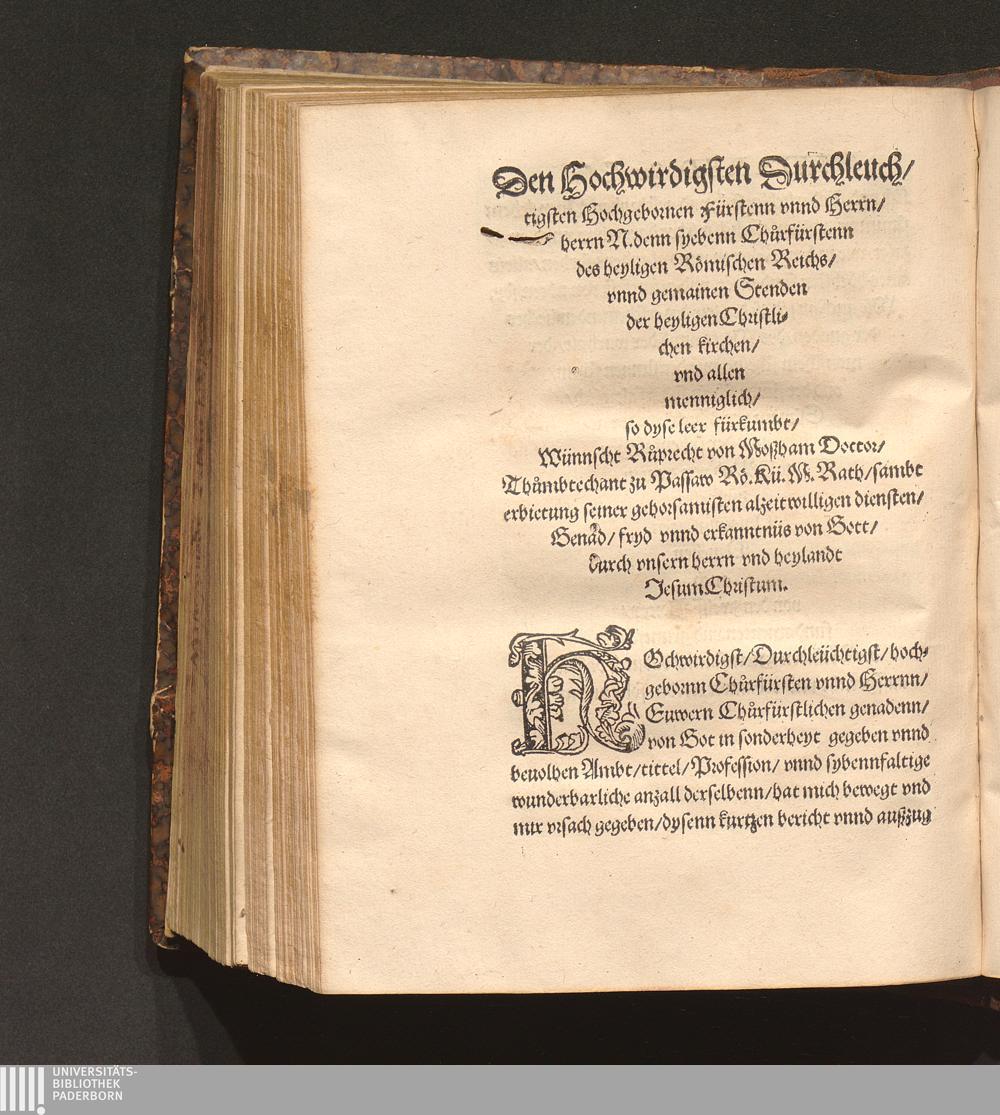 Den Hochwirdigsten Durchleuch/
tigsten Hochgebornen Fürstenn vnnd Herrn/
herrn N. denn syebenn Chůrfürstenn
des heyligen Römischen Reichs/
vnnd gemainen Stenden
der heyligen Christli⸗
chen kirchen/
vnd allen
menniglich/
so dyse leer fürkumbt/
Wünnscht Růprecht von Moßham Doctor/
Thůmbtechant zu Passaw Rö. Kü. M. Rath/ sambt
erbietung seiner gehorsamisten alzeit willigen diensten/
Genad/ fryd vnnd erkanntnüs von Gott/
durch vnsern herrn vnd heylandt
Jesum Christum.
HOchwirdigst/ Durchleüchtigst/ hoch⸗
gebornn Chůrfürsten vnnd Herrnn/
Euwern Chůrfürstlichen genadenn/
von Got in sonderheyt gegeben vnnd
beuolhen Ambt/ tittel/ Profession/ vnnd sybennfaltige
wunderbarliche anzall derselbenn/ hat mich bewegt vnd
mir vrsach gegeben/ dysenn kurtzen bericht vnnd außzug
UNIVERSITÄTS-
BIBLIOTHEK
PADERBORN